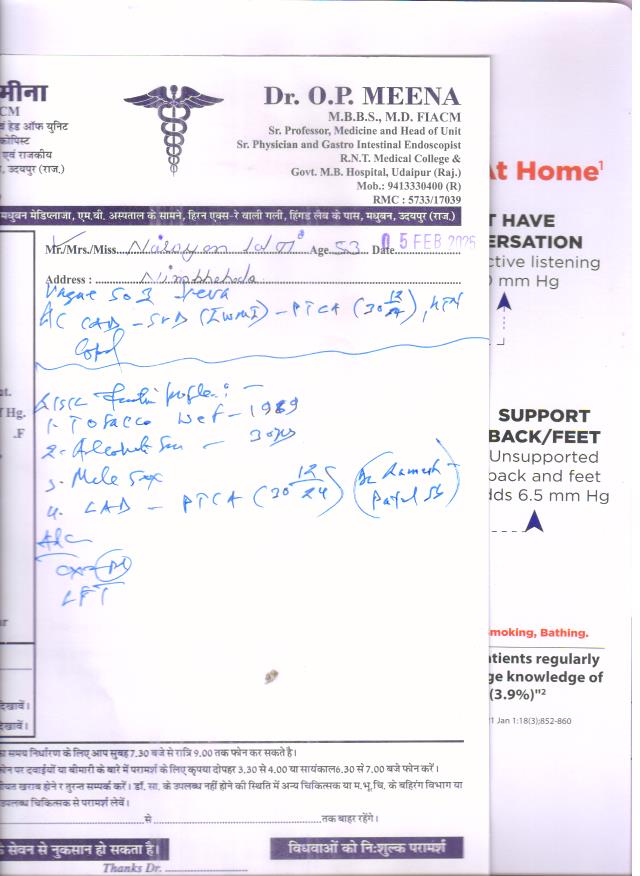 मीना
CM
वं हेड ऑफ यूनिट
कोपिस्ट
एवं राजकीय
, उदयपुर (राज.)
Dr. O.P. MEENA
M.B.B.S., M.D. FIACM
Sr. Professor, Medicine and Head of Unit
Sr. Physician and Gastro Intestinal Endoscopist
R.N.T. Medical College &
Govt. M.B. Hospital, Udaipur (Raj.)
Mob.: 9413330400 (R)
RMC : 5733/17039
मधुवन मेडिप्लाजा, एम.बी. अस्पताल के सामने, हिरन एक्स-रे वाली गली, हिंगड लैब के पास, मधुवन, उदयपुर (राज.)
Mr./Mrs./Miss Narayan Lal Age 53 Date 05 FEB 2025
Address : Nimbhaheda
CAD - SVD (IWMI) - PTCA (30 12/24), HTN
1. Tobacco - 1989
2. Alcohol - 30
3. Male Sex
4. CAD - PTCA (30 12/24) (Dr Ramesh Patel
LFT
t.
Hg.
.F
ur
दिखावें।
दिखावें।
का समय निर्धारण के लिए आप सुबह 7.30 बजे से रात्रि 9.00 तक फोन कर सकते है।
फोन पर दवाईयों या बीमारी के बारे में परामर्श के लिए कृपया दोपहर 3.30 से 4.00 या सायंकाल 6.30 से 7.00 बजे फोन करें।
बीयत खराब होने र तुरन्त सम्पर्क करें। डॉ. सा. के उपलब्ध नहीं होने की स्थिति में अन्य चिकित्सक या म.भू.चि. के बहिरंग विभाग या
उपलब्ध चिकित्सक से परामर्श लेवें।
से तक बाहर रहेंगे।
के सेवन से नुकसान हो सकता है। विधवाओं को नि:शुल्क परामर्श
Thanks Dr.
At Home1
T HAVE
ERSATION
ctive listening
0 mm Hg
SUPPORT
BACK/FEET
Unsupported
back and feet
dds 6.5 mm Hg
moking, Bathing.
atients regularly
ge knowledge of
(3.9%)"2
1 Jan 1:18(3);852-860